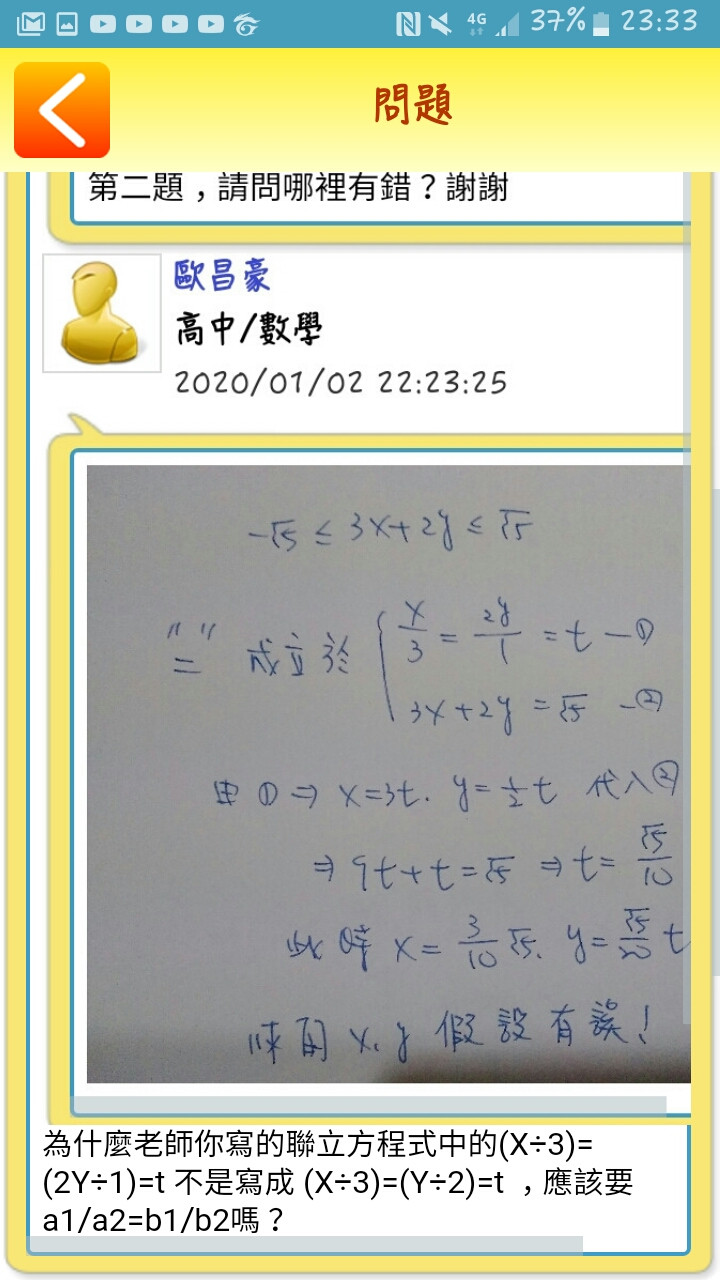 4G 37% 23:33
問題
第二題，請問哪裡有錯？謝謝
歐昌豪
高中/數學
2020/01/02 22:23:25
-√5 ≤ 3x+2y ≤ √5
"=" 成立於 { x/3 = 2y/1 = t —①
3x+2y = √5 —②
由 ① ⇒ x=3t. y=½t 代入②
⇒ 9t+t=√5 ⇒ t= √5/10
此時 x= 3/10 √5. y= √5/20 t
x、y 假設有誤!
為什麼老師你寫的聯立方程式中的(X÷3)=
(2Y÷1)=t 不是寫成 (X÷3)=(Y÷2)=t ，應該要
a1/a2=b1/b2嗎？